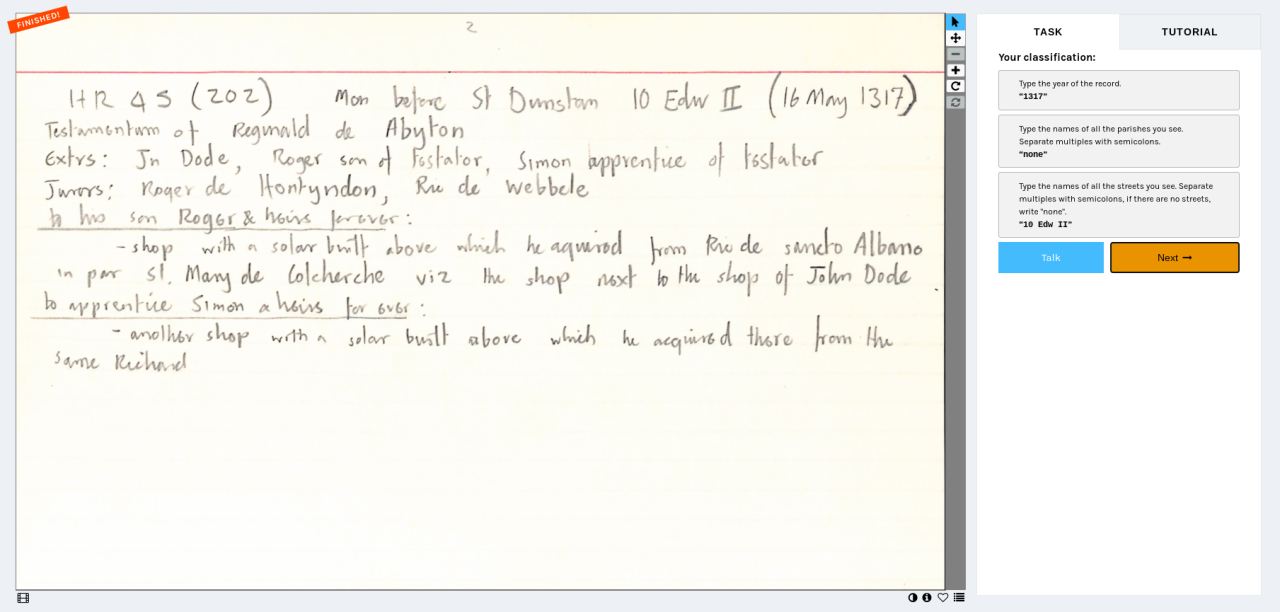 FINISHED!
2
HR 45 (202) Mon before St Dunstan 10 Edw II (16 May 1317)
Testamentum of Reginald de Abyton
Extrs: Jn Dode, Roger son of testator, Simon apprentice of testator
Jurors: Roger de Hontyndon, Ric de Webbele
to his son Roger & heirs forever:
- shop with a solar built above which he aquired from Ric de sancto Albano
in par St. Mary de Colcherche viz the shop next to the shop of John Dode
to apprentice Simon & heirs for ever:
- another shop with a solar built above which he acquired there from the
same Richard
TASK
TUTORIAL
Your classification:
Type the year of the record.
"1317"
Type the names of all the parishes you see.
Separate multiples with semicolons.
"none"
Type the names of all the streets you see. Separate
multiples with semicolons, if there are no streets,
write "none".
"10 Edw II"
Talk
Next